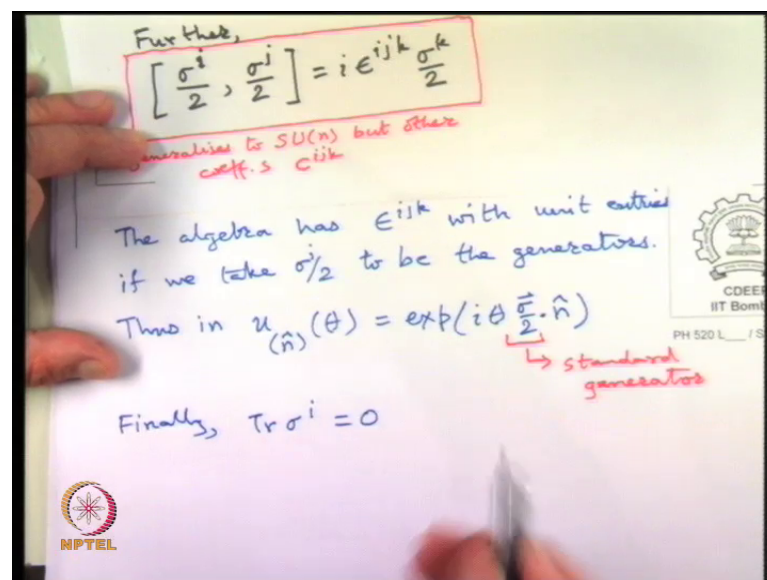 Further,
[σ^i/2, σ^j/2] = i ϵ^{ijk} σ^k/2
generalises to SU(n) but other
coeff.s c^{ijk}
The algebra has ϵ^{ijk} with unit entries
if we take σ^i/2 to be the generators.
Thus in u_{(n̂)}(θ) = exp(iθ σ⃗/2 · n̂)
↳ standard
generator
Finally, Tr σ^i = 0
CDEEP
IIT Bomb
PH 520 L___ / S
NPTEL